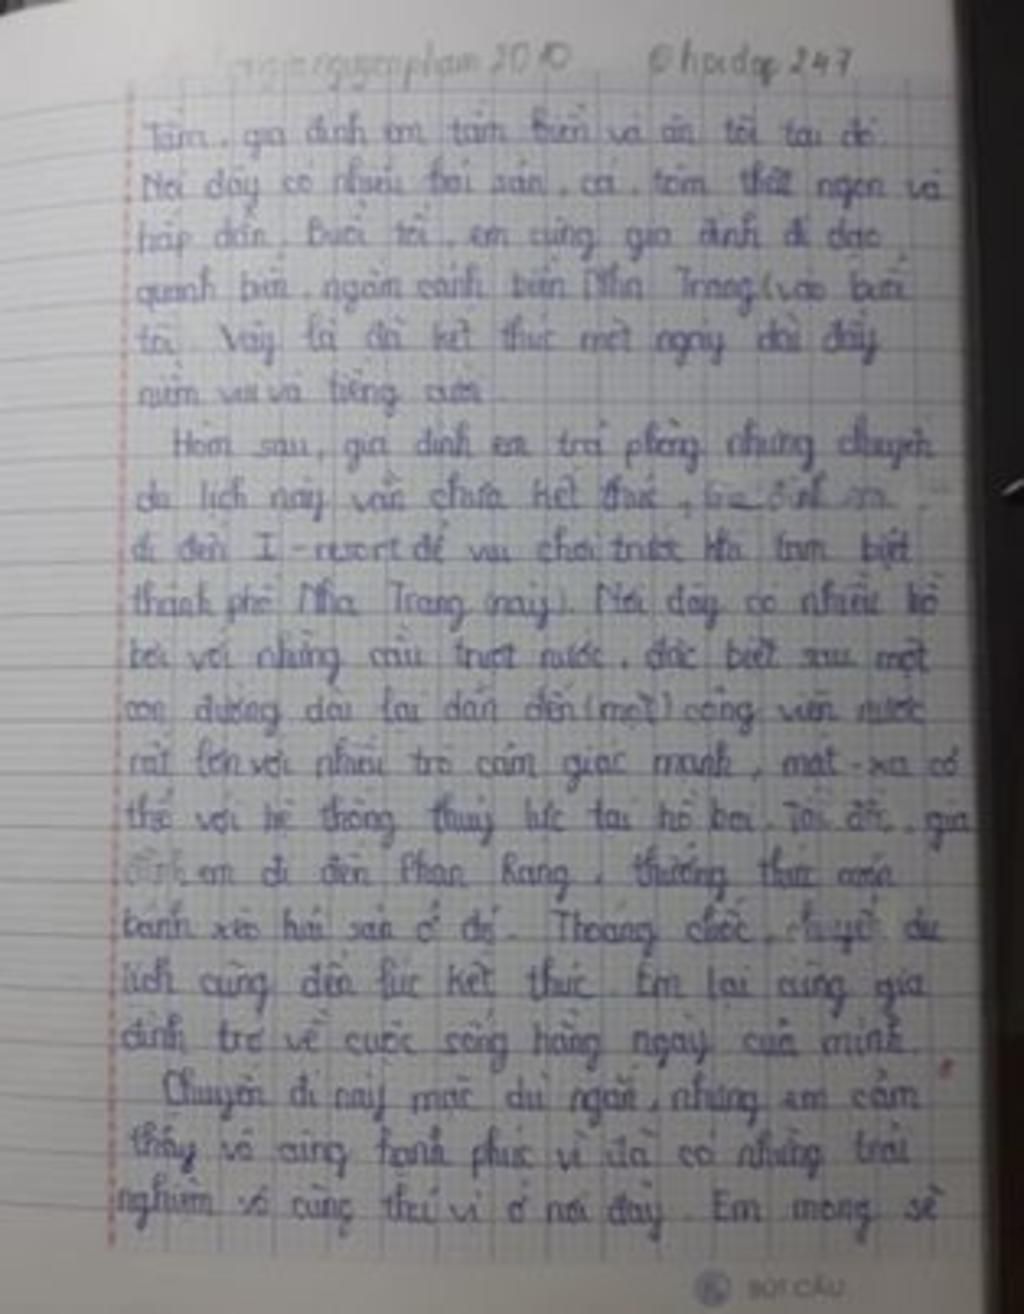 nguyenpham 2010 @hoidap 247
Tắm, gia đình em tắm biển và ăn tối tại đó.
Nơi đây có nhiều hải sản, cá, tôm thật ngon và
hấp dẫn. Buổi tối, em cùng gia đình đi dạo
quanh biển, ngắm cảnh biển Nha Trang (vào buổi
tối. Vậy là đã kết thúc một ngày dài đầy
niềm vui và tiếng cười.
Hôm sau, gia đình em trả phòng nhưng chuyến
du lịch này vẫn chưa kết thúc, gia đình em
đi đến I-resort để vui chơi trước khi tạm biệt
thành phố Nha Trang (này). Nơi đây có nhiều hồ
bơi với những cầu trượt nước, đặc biệt sau một
con đường dài lại dẫn đến (một) công viên nước
rất lớn với nhiều trò cảm giác mạnh, mát-xa cơ
thể với hệ thống thuỷ lực tại hồ bơi. gia
đình em đi đến Phan Rang, thưởng thức món
bánh xèo hải sản ở đó. Thoáng chốc, chuyến du
lịch cũng đến lúc kết thúc. Em lại cùng gia
đình trở về cuộc sống hằng ngày của mình.
Chuyến đi này mặc dù ngắn, nhưng em cảm
thấy vô cùng hạnh phúc vì đã có những trải
nghiệm vô cùng thú vị ở nơi đây. Em mong sẽ
BÚT CẦU